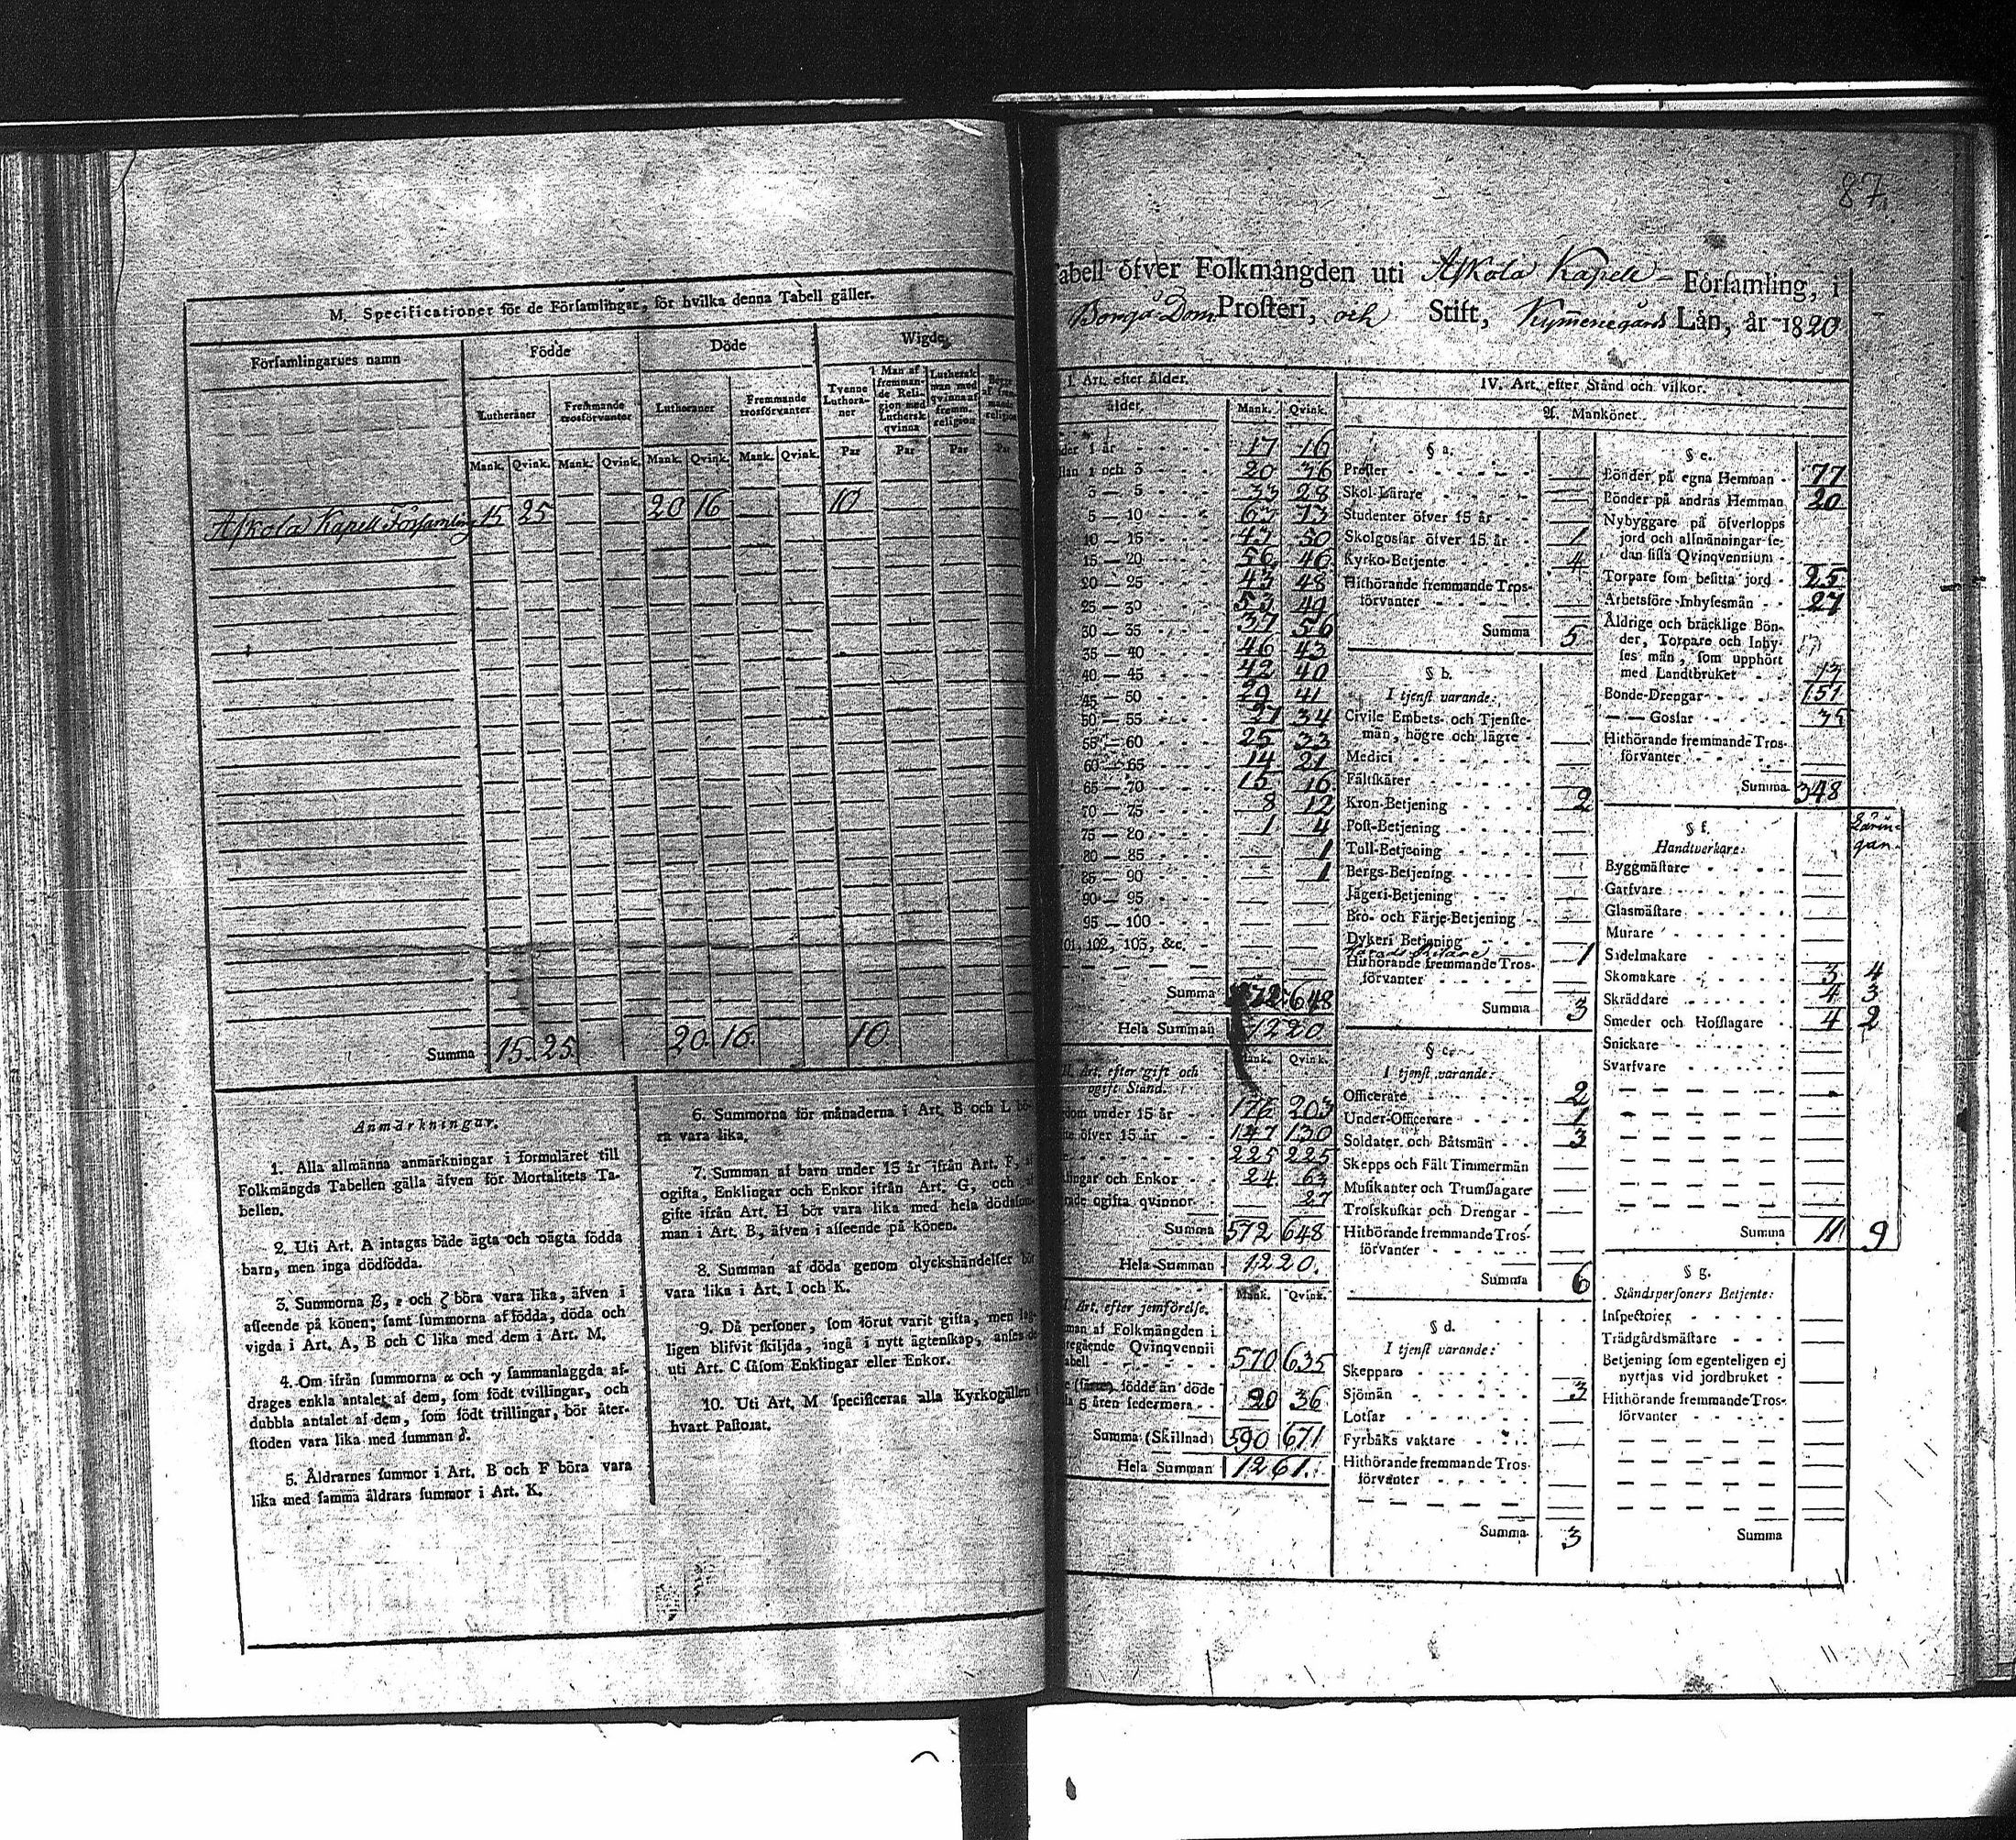 M. Specificationer för de Församlingar, för hvilka denna Tabell gäller.
Församlingarnes namn
Födde
Döde
Wigde
Lutheraner
Fremmande trosförvanter
Lutheraner
Fremmande trosförvanter
Tvenne Luthera-ner
1 Man af fremman-de Reli-gion med Luthersk qvinna
Luthersk man med qvinna af fremm. religion
Mank. Qvink. Mank. Qvink. Mank. Qvink. Mank. Qvink. Par Par Par
Askola Kapell Församling 15 25 — — 20 16 — — 10
Summa 15. 25. 20. 16. 10.
Anmärkningar.
1. Alla allmänna anmärkningar i formuläret till
Folkmängds Tabellen gälla äfven för Mortalitets Ta-
bellen.
2. Uti Art. A intagas både ägta och oägta födda
barn, men inga dödfödda.
3. Summorna β, ε och ζ böra vara lika, äfven i
afseende på könen; samt summorna af födda, döda och
vigda i Art. A, B och C lika med dem i Art. M.
4. Om ifrån summorna α och γ sammanlaggda af-
drages enkla antalet af dem, som födt tvillingar, och
dubbla antalet af dem, som födt trillingar, bör åter-
stoden vara lika med summan δ.
5. Åldrarnes summor i Art. B och F böra vara
lika med samma åldrars summor i Art. K.
6. Summorna för månaderna i Art. B och L bö-
ra vara lika.
7. Summan af barn under 15 år ifrån Art. F, af
ogifta, Enklingar och Enkor ifrån Art. G, och af
gifte ifrån Art. H bör vara lika med hela dödsum-
man i Art. B, äfven i afseende på könen.
8. Summan af döda genom olyckshändelser bör
vara lika i Art. I och K.
9. Då personer, som förut varit gifta, men lag-
ligen blifvit skiljda, ingå i nytt ägtenskap, anses de
uti Art. C såsom Enklingar eller Enkor.
10. Uti Art. M specificeras alla Kyrkogällen i
hvart Pastorat.
87.
Tabell öfver Folkmängden uti Askola Kapell- Församling, i
Borgå Dom Prosteri, och Stift, Kymmenegårds Län, år 1820
I. Art. efter ålder.
ålder. Mank. Qvink.
der 1 år 17 16
lan 1 och 3 20 36
3 — 5 33 28
5 — 10 63 73
10 — 15 43 50
15 — 20 56 46
20 — 25 43 48
25 — 30 53 49
30 — 35 37 56
35 — 40 46 43
40 — 45 42 40
45 — 50 29 41
50 — 55 27 34
55 — 60 25 33
60 — 65 14 21
65 — 70 15 16
70 — 75 8 12
75 — 80 1 4
80 — 85 — 1
85 — 90 — 1
90 — 95 — —
95 — 100 — —
101, 102, 103, &c. — —
Summa 572 648
Hela Summan 1220.
Mank. Qvink.
II. Art. efter gift och
ogift Stånd.
dom under 15 år 176 203
te öfver 15 år 147 130
225 225
lingar och Enkor 24 63
ande ogifta qvinnor 27
Summa 572 648
Hela Summan 1220.
Mank. Qvink.
Art. efter jemförelse.
man af Folkmängden i
regående Qvinqvennii
abell 570 635
födde än döde
5 åren sedermera 20 36
Summa (Skillnad) 590 671
Hela Summan 1261.
IV. Art. efter Stånd och vilkor.
A. Mankönet
§ a.
Prester —
Skol-Lärare —
Studenter öfver 15 år —
Skolgossar öfver 15 år 1
Kyrko-Betjente 4
Hithörande fremmande Tros-
förvanter —
Summa 5
§ b.
I tjenst varande:
Civile Embets- och Tjenste-
män, högre och lägre —
Medici —
Fältskärer —
Kron-Betjening 2
Post-Betjening —
Tull-Betjening —
Bergs-Betjening —
Jägeri-Betjening —
Bro- och Färje-Betjening —
Dykeri Betjening —
1
Hithörande fremmande Tros-
förvanter —
Summa 3
§ c.
I tjenst varande:
Officerare 2
Under-Officerare 1
Soldater och Båtsmän 3
Skepps och Fält Timmermän —
Musikanter och Trumslagare —
Trosskuskar och Drengar —
Hithörande fremmande Tros-
förvanter —
Summa 6
§ d.
I tjenst varande:
Skeppare —
Sjömän 3
Lotsar —
Fyrbåks vaktare —
Hithörande fremmande Tros-
förvanter —
Summa 3
§ e.
Bönder på egna Hemman 77
Bönder på andras Hemman 20
Nybyggare på öfverlopps
jord och allmänningar se-
dan sista Qvinqvennium —
Torpare som besitta jord 25
Arbetsföre Inhysesmän 27
Åldrige och bräcklige Bön-
der, Torpare och Inhy-
ses män, som upphört
med Landtbruket 13
Bonde-Drengar 151
— — Gossar 35
Hithörande fremmande Tros-
förvanter —
Summa 348
§ f.
Lärlin-
gar.
Handtverkare:
Byggmästare —
Garfvare —
Glasmästare —
Murare —
Sadelmakare —
Skomakare 3 4
Skräddare 4 3
Smeder och Hofslagare 4 2
Snickare —
Svarfvare —
Summa 11 9
§ g.
Ståndspersoners Betjente:
Inspectorer —
Trädgårdsmästare —
Betjening som egenteligen ej
nyttjas vid jordbruket —
Hithörande fremmande Tros-
förvanter —
Summa